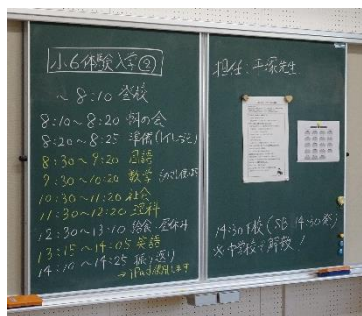 小6体験入学②
~8:10 登校
8:10~8:20 朝の会
8:20~8:25 準備
8:30~9:20 国語
9:30~10:20 数学
10:30~11:20 社会
11:30~12:20 理科
12:30~13:10 給食・昼休み
13:15~14:05 英語
14:10~14:25 振り返り
→iPad使用します
担任:工塚先生
14:30下校(SB 14:30発)
※中学校で解散!